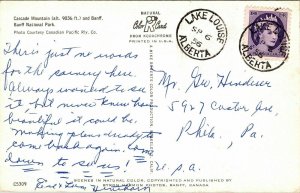 Cascade Mountain (alt. 9836 ft.) and Banff,
Banff National Park.
Photo Courtesy Canadian Pacific Rly. Co.
NATURAL
Color Card
DEKON KODACHROME
PRINTED IN U.S.A.
LAKE LOUISE
SP 5
56
ALBERTA
LAKE LOUISE
ALBERTA
There's just no words
for the scenery here.
Always wanted to see
it, but never knew how
beautiful it could be.
making plans already to
come back again. Come
down to see us!
Mr. Geo Henderer
5947 Castor Ave.
Phila., Pa.
U.S.A.
C5309
SCENICS IN NATURAL COLOR, COPYRIGHTED AND PUBLISHED BY
BYRON HARMON PHOTOS, BANFF, CANADA